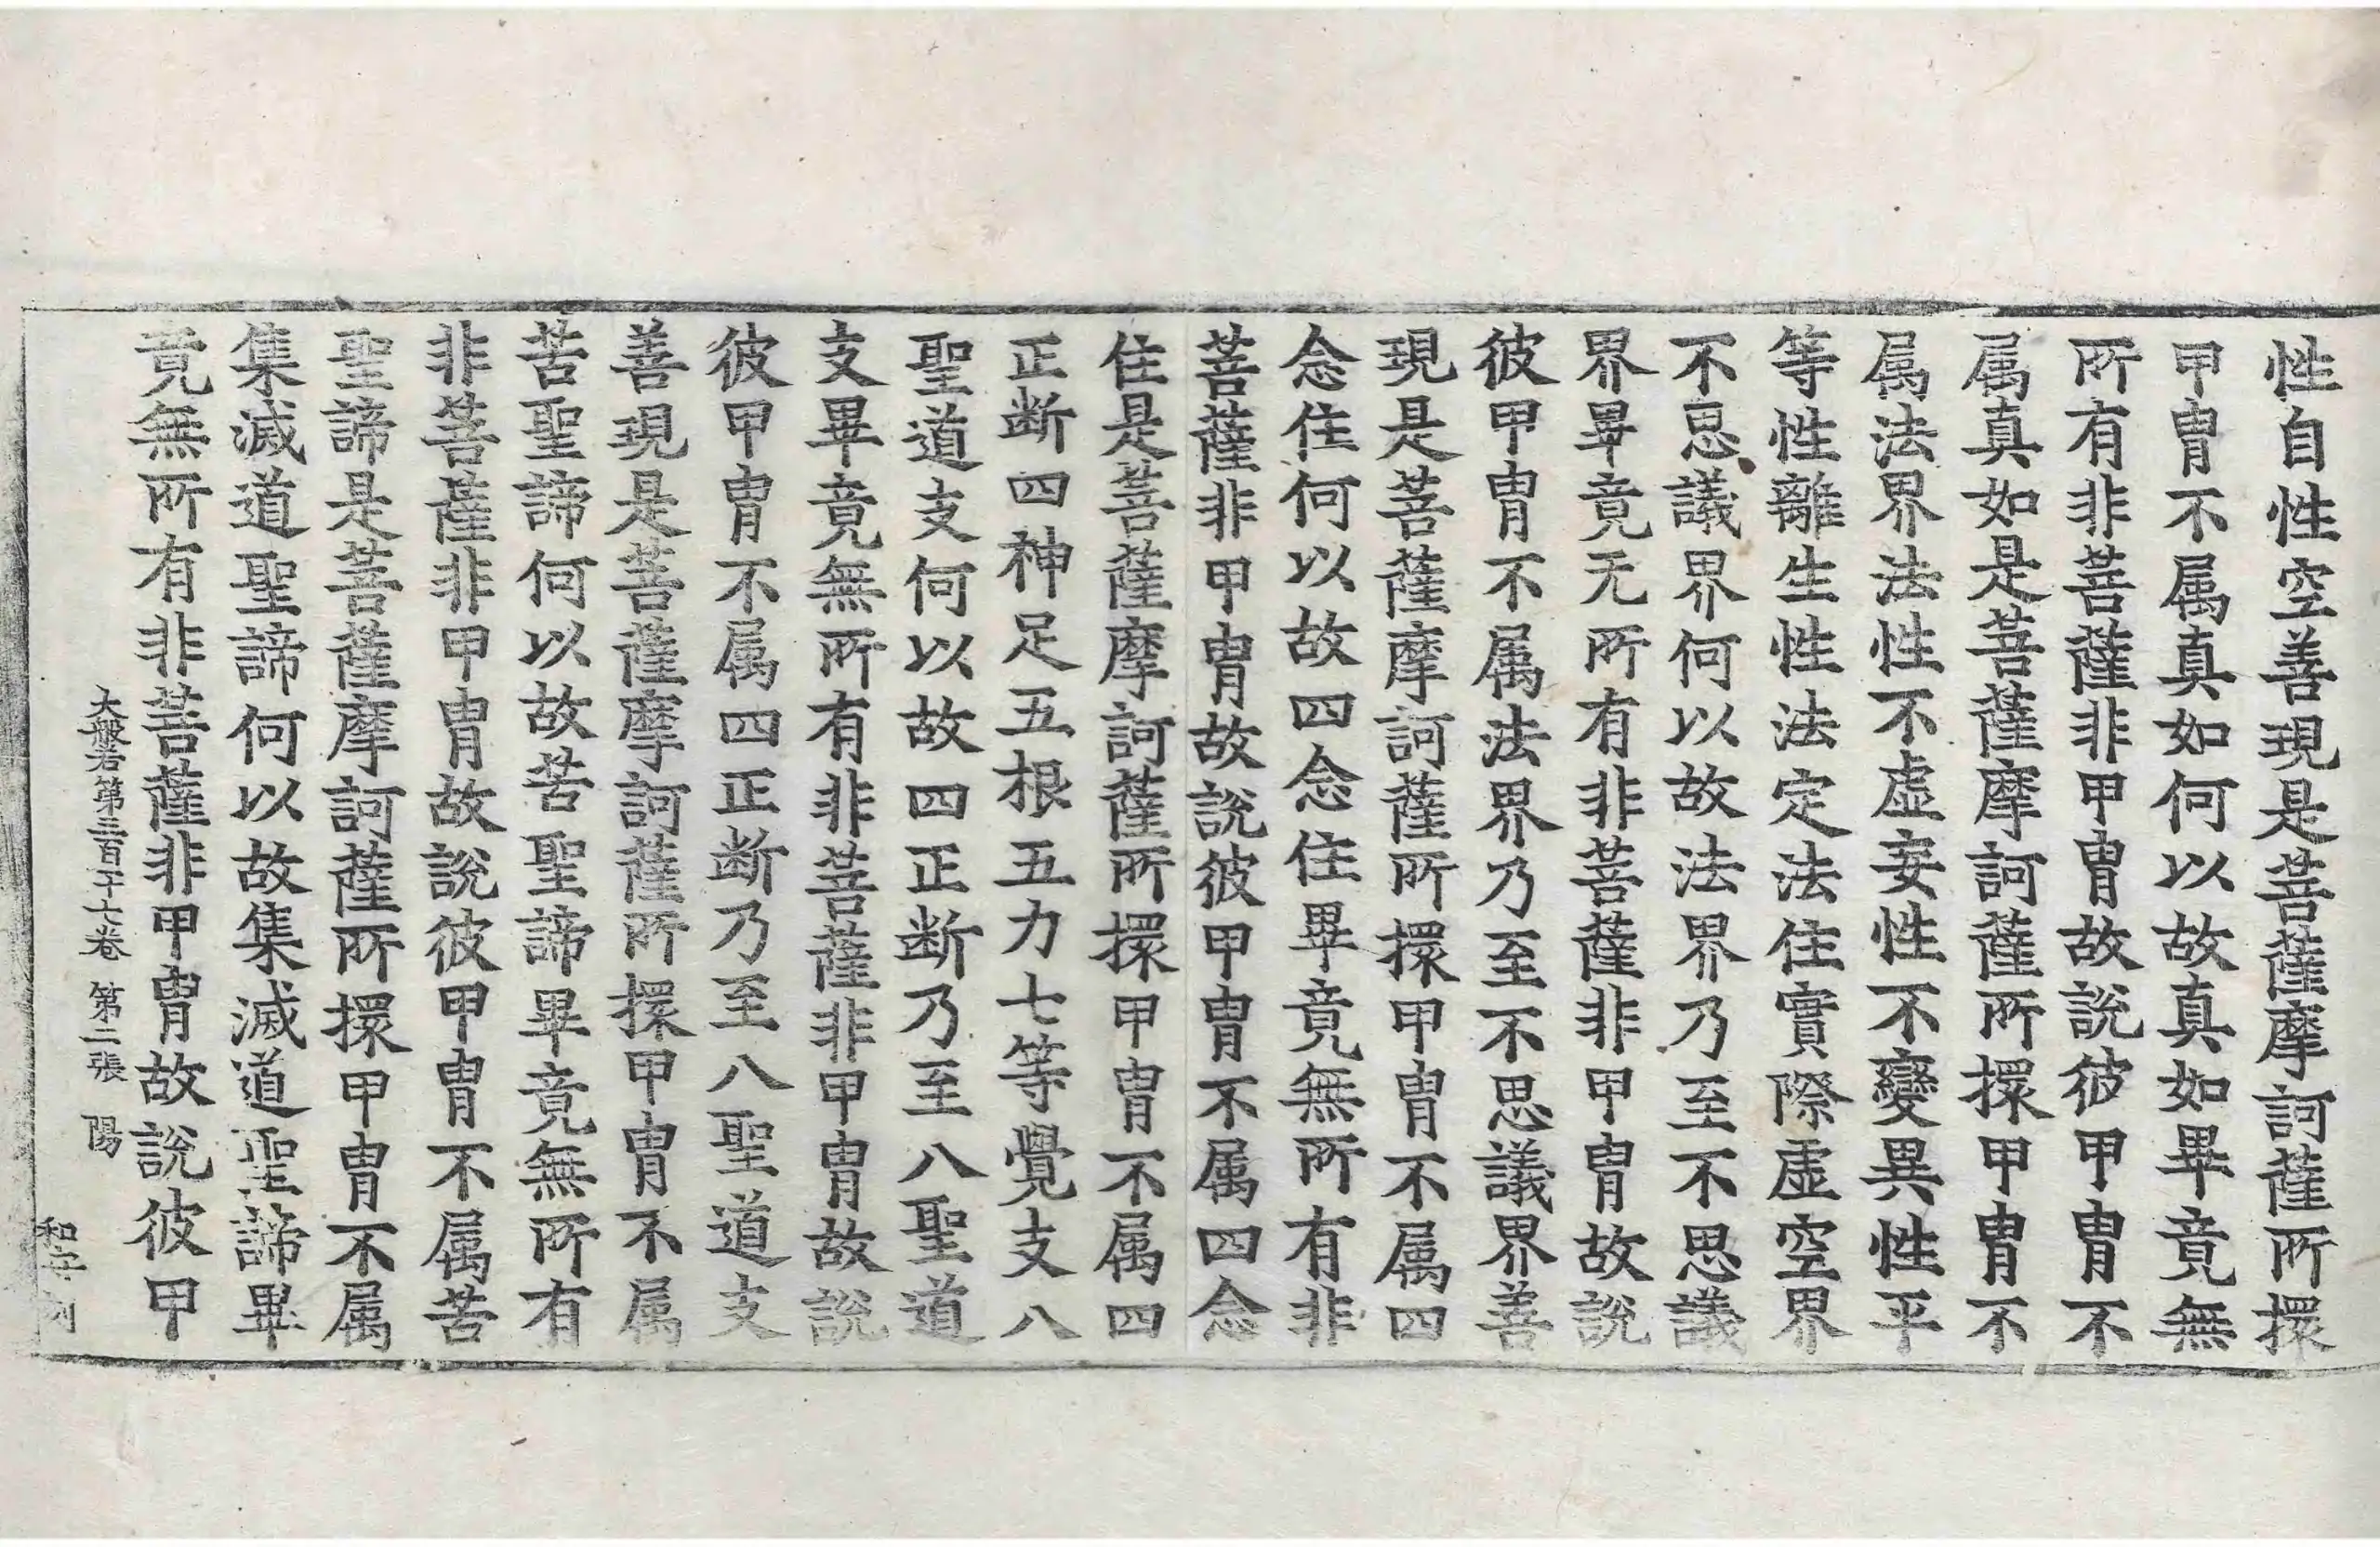 性自性空善現是菩薩摩訶薩所擐
甲冑不属真如何以故真如畢竟無
所有非菩薩非甲冑故説彼甲冑不
属真如是菩薩摩訶薩所擐甲冑不
属法界法性不虚妄性不變異性平
等性離生性法定法住實際虚空界
不思議界何以故法界乃至不思議
界畢竟无所有非菩薩非甲冑故説
彼甲冑不属法界乃至不思議界善
現是菩薩摩訶薩所擐甲冑不属四
念住何以故四念住畢竟無所有非
菩薩非甲冑故説彼甲冑不属四念
住是菩薩摩訶薩所擐甲冑不属四
正断四神足五根五力七等覺支八
聖道支何以故四正断乃至八聖道
支畢竟無所有非菩薩非甲冑故説
彼甲冑不属四正断乃至八聖道支
善現是菩薩摩訶薩所擐甲冑不属
苦聖諦何以故苦聖諦畢竟無所有
非菩薩非甲冑故説彼甲冑不属苦
聖諦是菩薩摩訶薩所擐甲冑不属
集滅道聖諦何以故集滅道聖諦畢
竟無所有非菩薩非甲冑故説彼甲
大般若第三百十七卷 第二張 陽